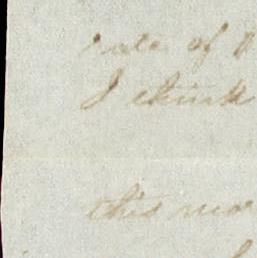 rate of
I think
this mor